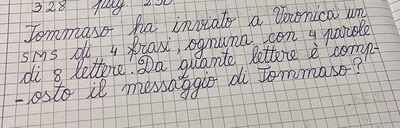 328 pag. 250
Tommaso ha inviato a Veronica un
SMS di 4 frasi, ognuna con 4 parole
di 8 lettere. Da quante lettere è comp-
-osto il messaggio di Tommaso?